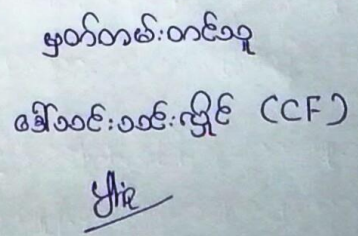 မှတ်တမ်းတင်သူ
ဒေါ်သင်းသင်းလှိုင် (CF)